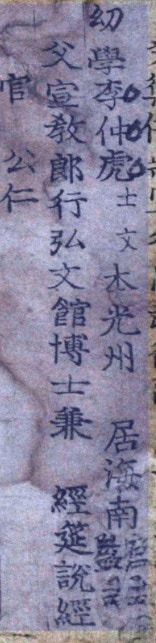 幼學李仲虎士文本光州 居海南
父宣敎郞行弘文館博士兼 經筵說經
官 公仁